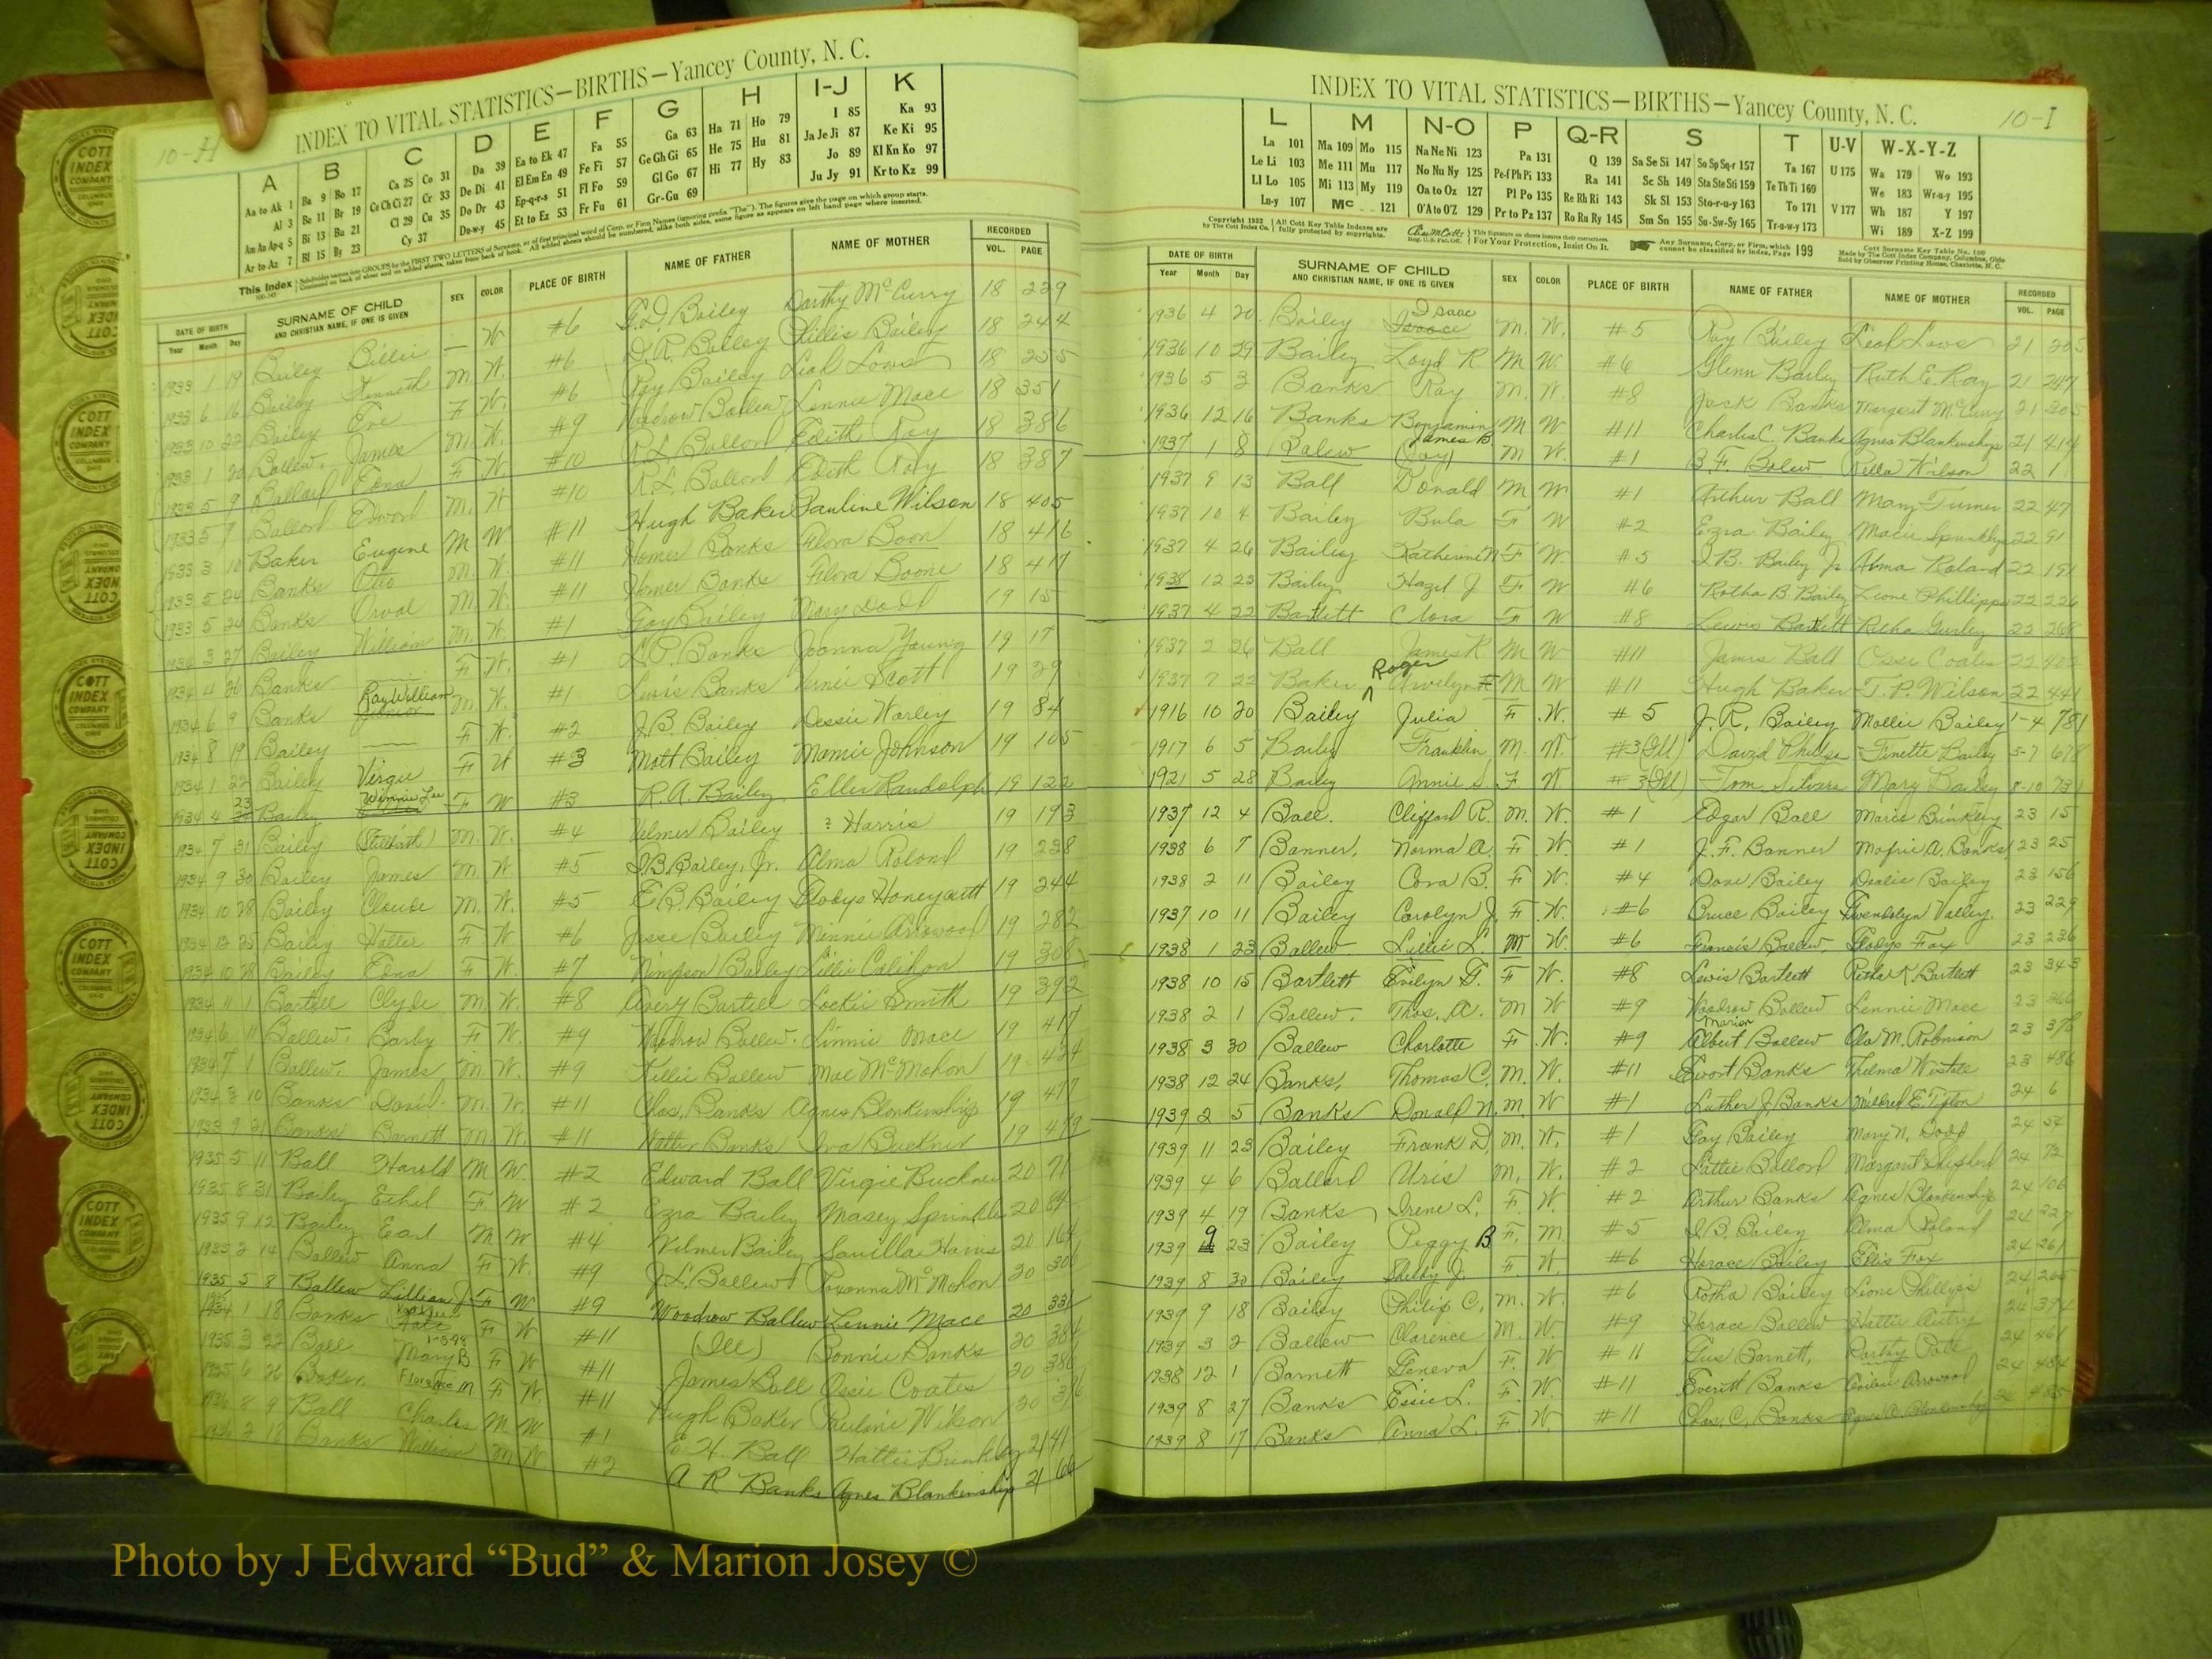 10-H
INDEX TO VITAL STATISTICS—BIRTHS—Yancey County, N. C.
A B C D E F G H I-J K
Aa to Ak 1 Ba 9 Bo 17 Ca 25 Co 31 Da 39 Ea to Ek 47 Fa 55 Ga 63 Ha 71 Ho 79 I 85 Ka 93
Al 3 Be 11 Br 19 Ce Ch Ci 27 Cr 33 De Di 41 El Em En 49 Fe Fi 57 Ge Gh Gi 65 He 75 Hu 81 Ja Je Ji 87 Ke Ki 95
Am An Ap-q 5 Bi 13 Bu 21 Cl 29 Cu 35 Do Dr 43 Ep-q-r-s 51 Fl Fo 59 Gl Go 67 Hi 77 Hy 83 Jo 89 Kl Kn Ko 97
Ar to Az 7 Bl 15 By 23 Cy 37 Du-w-y 45 Et to Ez 53 Fr Fu 61 Gr-Gu 69 Ju Jy 91 Kr to Kz 99
This Index
DATE OF BIRTH SURNAME OF CHILD SEX COLOR PLACE OF BIRTH NAME OF FATHER NAME OF MOTHER RECORDED
Year Month Day AND CHRISTIAN NAME, IF ONE IS GIVEN VOL. PAGE
1933 1 19 Bailey Billie — W #6 G.D. Bailey Dorthy McCurry 18 229
1933 6 16 Bailey Kenneth M. W. #6 D.R. Bailey Phillis Bailey 18 244
1933 10 22 Bailey Eve F W. #6 Roy Bailey Leah Laws 18 255
1933 1 20 Ballew, James M. W. #9 Woodrow Ballew Lennie Mace 18 351
1933 5 9 Ballard Edna F W. #10 R.L. Ballard Edith Ray 18 386
1933 5 9 Ballard Edward M. W #10 R.L. Ballard Edith Ray 18 387
1933 3 10 Baker Eugene M W #11 Hugh Baker Pauline Wilson 18 405
1933 5 24 Banks Otis M. W. #11 Homer Banks Flora Boon 18 416
1933 5 24 Banks Orval M. W. #11 Homer Banks Flora Boone 18 417
1934 3 27 Bailey William M. W. #1 Gay Bailey Mary Dodd 19 15
1934 4 26 Banks F W. #1 L.P. Banks Joanna Young 19 17
1934 6 9 Banks Ray William Junior M. W. #1 Lewis Banks Scott 19 29
1934 8 19 Bailey F W. #2 J.B. Bailey Dessie Warley 19 84
1934 1 22 Bailey Virgie F W #3 Matt Bailey Mamie Johnson 19 105
1934 4 23 Bailey Winnie Lee F W #3 R.A. Bailey Ellen Randolph 19 122
1934 7 31 Bailey (Stillbirth) M. W. #4 Wilmer Bailey ? Harris 19 193
1934 9 30 Bailey James M. W #5 J.B. Bailey, Jr. Alma Roland 19 238
1934 10 28 Bailey Claude M. W. #5 E.B. Bailey Gladys Honeycutt 19 244
1934 12 25 Bailey Hattie F W #6 Jesse Bailey Minnie Arrwood 19 282
1934 10 28 Bailey Edna F W. #7 Simpson Bailey Lillie Calihan 19 308
1934 11 1 Bartlett Clyde M. W. #8 Avery Bartlett Lockie Smith 19 392
1934 6 11 Ballew, Barby F W. #9 Woodrow Ballew Linnie Mace 19 417
1934 7 1 Ballew, James M. W. #9 Willie Ballew Mae McMahon 19 424
1934 3 10 Banks David M. W. #11 Chas. Banks Agnes Blankenship 19 477
1933 9 21 Banks Barnett M. W. #11 Walter Banks Iva Buckner 19 479
1935 5 11 Ball Harold M W. #2 Edward Ball Virgie Buckner 20 71
1935 8 31 Bailey Ethel F W #2 Ezra Bailey Masey Sprinkle 20 84
1935 9 12 Bailey Earl M W #4 Wilmer Bailey Savilla Harris 20 164
1935 2 14 Ballew Anna F W. #9 J.L. Ballew Roxanna McMahon 20 306
1935 5 8 Ballew Lillian J. F W #9 Woodrow Ballew Lennie Mace 20 331
1934 1 18 Banks F W #11 (Ill) Bonnie Banks 20 384
1935 3 22 Ball Mary B F W #11 James Ball Ossie Coates 20 386
1935 6 26 Baker, Florence M F W. #11 Hugh Baker Pauline Wilson 20
1936 8 9 Ball Charles M W #1 E.H. Ball Hattie Brinkley 21 41
1936 2 18 Banks William M W #2 A R Banks Agnes Blankenship 21 66
10-I
INDEX TO VITAL STATISTICS—BIRTHS—Yancey County, N. C.
L M N-O P Q-R S T U-V W-X-Y-Z
La 101 Ma 109 Mo 115 Na Ne Ni 123 Pa 131 Q 139 Sa Se Si 147 So Sp Sq-r 157 Ta 167 U 175 Wa 179 Wo 193
Le Li 103 Me 111 Mu 117 No Nu Ny 125 Pe-f Ph Pi 133 Ra 141 Sc Sh 149 Sta Ste Sti 159 Te Th Ti 169 We 183 Wr-u-y 195
Ll Lo 105 Mi 113 My 119 Oa to Oz 127 Pl Po 135 Re Rh Ri 143 Sk Sl 153 Sto-r-u-y 163 To 171 V 177 Wh 187 Y 197
Lu-y 107 Mc 121 O'A to O'Z 129 Pr to Pz 137 Ro Ru Ry 145 Sm Sn 155 Su-Sw-Sy 165 Tr-u-w-y 173 Wi 189 X-Z 199
Copyright 1932 by The Cott Index Co. All Cott Key Table Indexes are fully protected by copyrights. This Signature on sheets insures their correctness. For Your Protection, Insist On It. Any Surname, Corp. or Firm, which cannot be classified by Index, Page 199 Cott Surname Key Table No. 100 Made by The Cott Index Company, Columbus, Ohio Sold by Observer Printing House, Charlotte, N. C.
DATE OF BIRTH SURNAME OF CHILD SEX COLOR PLACE OF BIRTH NAME OF FATHER NAME OF MOTHER RECORDED
Year Month Day AND CHRISTIAN NAME, IF ONE IS GIVEN VOL. PAGE
1936 4 20 Bailey Isaac M. W. #5 Roy Bailey Leah Laws 21 205
1936 10 29 Bailey Loyd R M W. #6 Glenn Bailey Ruth E. Ray 21 247
1936 5 3 Banks Ray M. W. #8 Jack Banks Margaret McCurry 21 305
1936 12 16 Banks Benjamin M W #11 Charlie C. Banks Agnes Blankenship 21 414
1937 1 8 Balew James B (Jay) M W. #1 B.F. Balew Rella Wilson 22 1
1937 9 13 Ball Donald M W #1 Arthur Ball Mary Turner 22 47
1937 10 4 Bailey Bula F W #2 Ezra Bailey Macie Sprinkle 22 91
1937 4 26 Bailey Katherine N F W. #5 J.B. Bailey Jr Alma Roland 22 191
1938 12 23 Bailey Hazel J F W #6 Rotha B Bailey Leone Phillipps 22 226
1937 4 22 Bartlett Clora F W #8 Lewis Bartlett Retha Gurley 22 268
1937 2 26 Ball James R M W #11 James Ball Ossie Coates 22 402
1937 7 22 Baker Roger Arvelyn F M W #11 Hugh Baker T.P. Wilson 22 441
1916 10 20 Bailey Julia F. W. #5 J.R. Bailey Mollie Bailey 1-4 781
1917 6 5 Baily Franklin M. W. #3(Ill) David Phillips Finette Bailey 5-7 678
1921 5 28 Bailey Annie S. F W #3(Ill) Tom Silvers Mary Bailey 8-10 731
1937 12 4 Ball. Clifford R. M. W. #1 Edgar Ball Marie Brinkley 23 15
1938 6 7 Banner, Norma A. F. W. #1 J.F. Banner Mafrie A. Banks 23 25
1938 2 11 Bailey Cora B. F W. #4 Dave Bailey Dealie Bailey 23 156
1937 10 11 Bailey Carolyn J. F. W. #6 Bruce Bailey Gwendolyn Valley 23 229
1938 1 23 Ballew Lillie L. M W. #6 Francis Ballew, Gladys Fox 23 236
1938 10 15 Bartlett Evilyn G. F W. #8 Lewis Bartlett Retha K. Bartlett 23 343
1938 2 1 Ballew. Thos. A. M W #9 Woodrow Ballew Lennie Mace 23 366
1938 3 30 Ballew Charlotte F W. #9 Marion Albert Ballew Ola M. Robinson 23 378
1938 12 24 Banks, Thomas C. M. W. #11 Ewart Banks Thelma Westall 23 486
1939 2 5 Banks Donald N. M W #1 Luther J Banks Mildred E. Tipton 24 6
1939 11 23 Bailey Frank D. M. W. #1 Gay Bailey Mary N. Dodd 24 54
1939 4 6 Ballard Uris M. W. #2 Littie Ballard Margaret Shepherd 24 72
1939 4 19 Banks Irene L. F. W. #2 Arthur Banks Agnes Blankenship 24 106
1939 9 23 Bailey Peggy B F. M. #5 J.B. Bailey Alma Roland 24 227
1939 8 30 Bailey Shelby J. F. W. #6 Horace Bailey Ellis Fox 24 261
1939 9 18 Bailey Philip C. M. W. #6 Rotha Bailey Leone Phillips 24 265
1939 3 2 Ballew Clarence M. W. #9 Horace Ballew Hattie Autry 24 374
1938 12 1 Barnett Geneva F. W #11 Gus Barnett, Dorthy Pate 24 461
1939 8 27 Banks Essie L. F. W. #11 Everitt Banks Arrowood 24 484
1939 8 17 Banks Anna L. F. W. #11 Chas. C. Banks Agnes A. Blankenship 24 485
COTT INDEX COMPANY COLUMBUS OHIO
Photo by J Edward “Bud” & Marion Josey ©